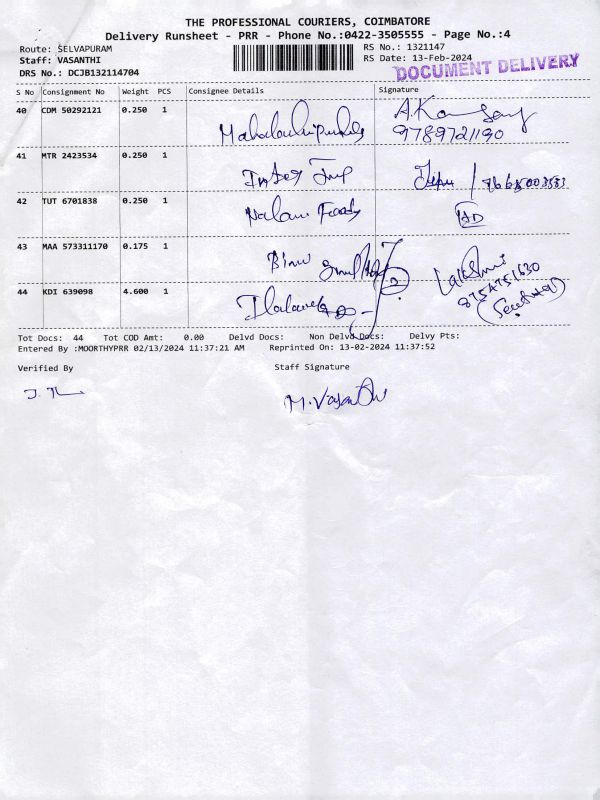 THE PROFESSIONAL COURIERS, COIMBATORE
Delivery Runsheet - PRR - Phone No.:0422-3505555 - Page No.:4
Route: SELVAPURAM RS No.: 1321147
Staff: VASANTHI RS Date: 13-Feb-2024
DRS No.: DCJB132114704 DOCUMENT DELIVERY
S No Consignment No Weight PCS Consignee Details Signature
40 CDM 50292121 0.250 1
9789721190
41 MTR 2423534 0.250 1
42 TUT 6701838 0.250 1
43 MAA 573311170 0.175 1
Lakshmi
8754751630
44 KDI 639098 4.600 1
Tot Docs: 44 Tot COD Amt: 0.00 Delvd Docs: Non Delvd Docs: Delvy Pts:
Entered By :MOORTHYPRR 02/13/2024 11:37:21 AM Reprinted On: 13-02-2024 11:37:52
Verified By Staff Signature
M. Vasanthi